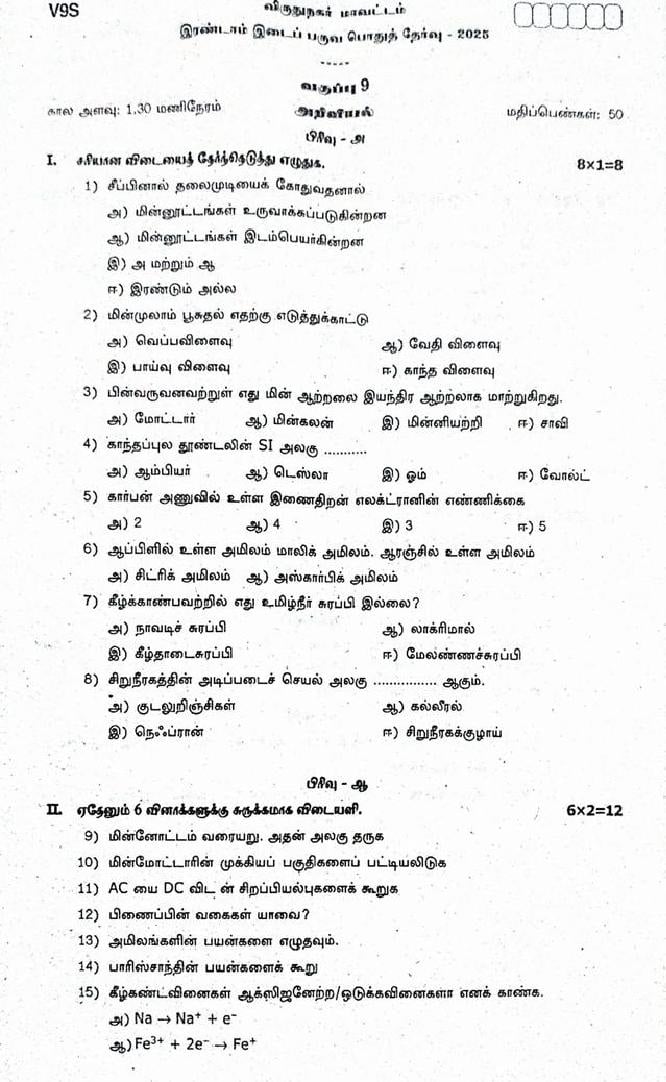 V9S
விருதுநகர் மாவட்டம்
இரண்டாம் இடைப் பருவ பொதுத் தேர்வு - 2025
-----
வகுப்பு 9
கால அளவு: 1.30 மணிநேரம் அறிவியல் மதிப்பெண்கள்: 50
பிரிவு - அ
I. சரியான விடையைத் தேர்ந்தெடுத்து எழுதுக. 8x1=8
1) சீப்பினால் தலைமுடியைக் கோதுவதனால்
அ) மின்னூட்டங்கள் உருவாக்கப்படுகின்றன
ஆ) மின்னூட்டங்கள் இடம்பெயர்கின்றன
இ) அ மற்றும் ஆ
ஈ) இரண்டும் அல்ல
2) மின்முலாம் பூசுதல் எதற்கு எடுத்துக்காட்டு
அ) வெப்பவிளைவு ஆ) வேதி விளைவு
இ) பாய்வு விளைவு ஈ) காந்த விளைவு
3) பின்வருவனவற்றுள் எது மின் ஆற்றலை இயந்திர ஆற்றலாக மாற்றுகிறது.
அ) மோட்டார் ஆ) மின்கலன் இ) மின்னியற்றி ஈ) சாவி
4) காந்தப்புல தூண்டலின் SI அலகு ...........
அ) ஆம்பியர் ஆ) டெஸ்லா இ) ஓம் ஈ) வோல்ட்
5) கார்பன் அணுவில் உள்ள இணைதிறன் எலக்ட்ரானின் எண்ணிக்கை
அ) 2 ஆ) 4 இ) 3 ஈ) 5
6) ஆப்பிளில் உள்ள அமிலம் மாலிக் அமிலம். ஆரஞ்சில் உள்ள அமிலம்
அ) சிட்ரிக் அமிலம் ஆ) அஸ்கார்பிக் அமிலம்
7) கீழ்க்காண்பவற்றில் எது உமிழ்நீர் சுரப்பி இல்லை?
அ) நாவடிச் சுரப்பி ஆ) லாக்ரிமால்
இ) கீழ்தாடைசுரப்பி ஈ) மேலண்ணச்சுரப்பி
8) சிறுநீரகத்தின் அடிப்படைச் செயல் அலகு ................ ஆகும்.
அ) குடலுறிஞ்சிகள் ஆ) கல்லீரல்
இ) நெஃப்ரான் ஈ) சிறுநீரகக்குழாய்
பிரிவு - ஆ
II. ஏதேனும் 6 வினாக்களுக்கு சுருக்கமாக விடையளி. 6x2=12
9) மின்னோட்டம் வரையறு. அதன் அலகு தருக
10) மின்மோட்டாரின் முக்கியப் பகுதிகளைப் பட்டியலிடுக
11) AC யை DC விட ன் சிறப்பியல்புகளைக் கூறுக
12) பிணைப்பின் வகைகள் யாவை?
13) அமிலங்களின் பயன்களை எழுதவும்.
14) பாரிஸ்சாந்தின் பயன்களைக் கூறு
15) கீழ்கண்டவினைகள் ஆக்ஸிஜனேற்ற/ஒடுக்கவினைகளா எனக் காண்க.
அ) Na → Na⁺ + e⁻
ஆ) Fe³⁺ + 2e⁻ → Fe⁺